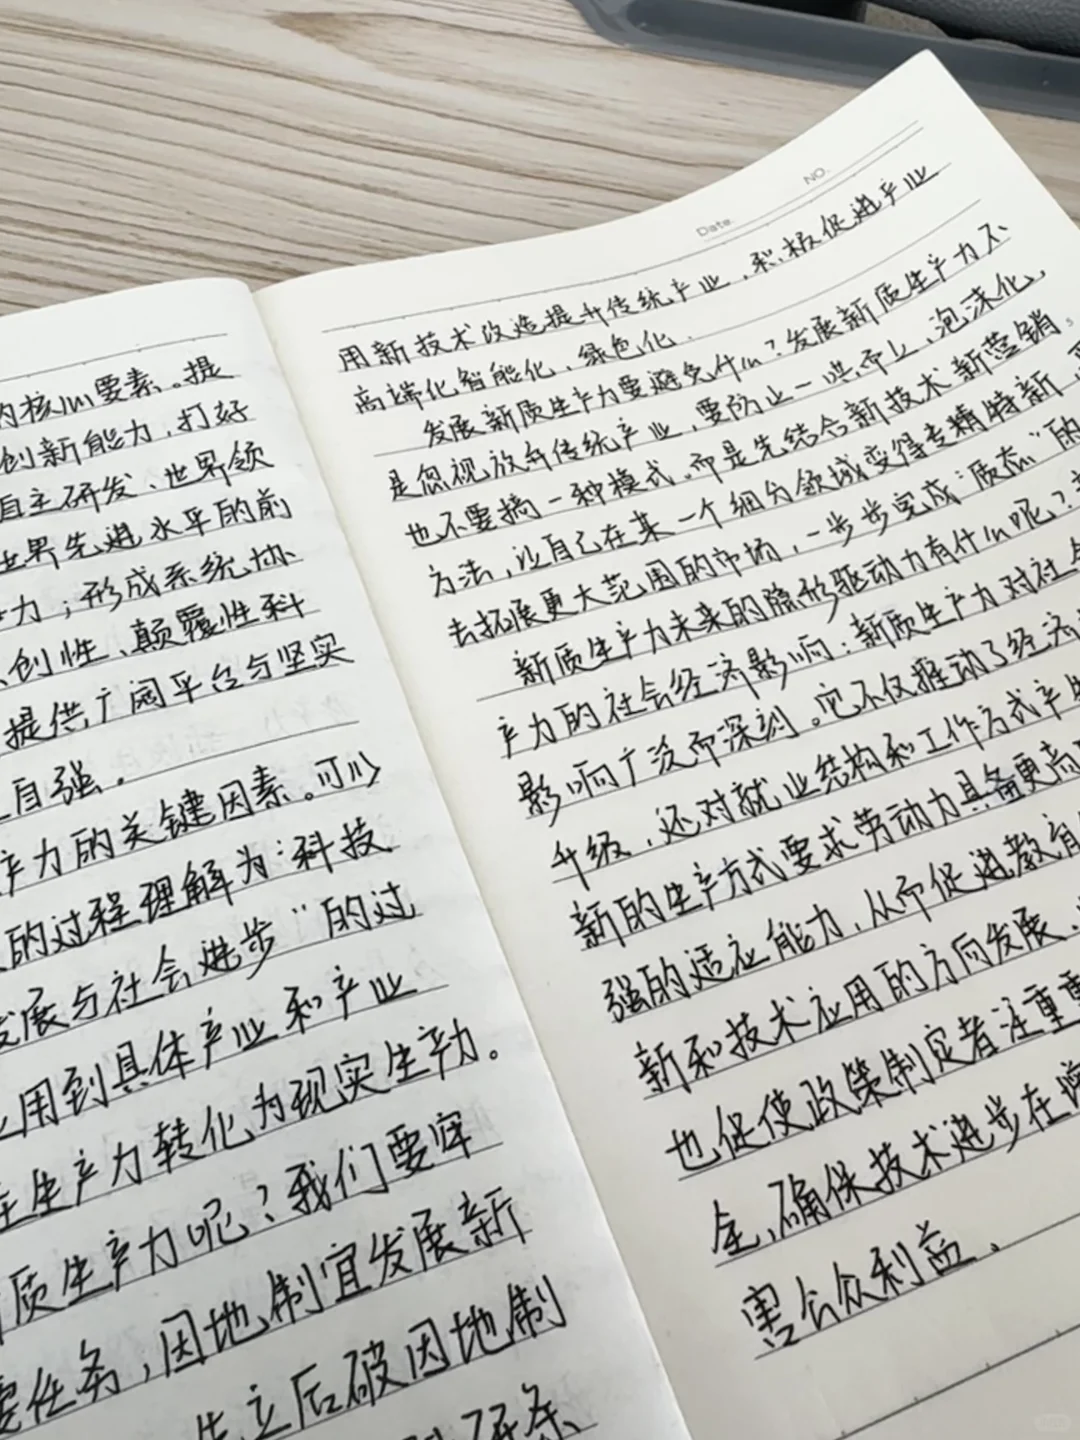 内核心要素。提
创新能力，打好
自主研发、世界领
世界先进水平的前
力；形成系统协
创性、颠覆性科
提供广阔平台与坚实
自强。
产力的关键因素。可以
的过程理解为：科技
发展与社会进步"的过
用到具体产业和产业
在生产力转化为现实生产力。
质生产力呢？我们要牢
要任务，因地制宜发展新
先立后破因地制
NO.
Date.
用新技术改造提升传统产业，积极促进产业
高端化智能化、绿色化.
发展新质生产力要避免什么？发展新质生产力不
是忽视放弃传统产业，要防止一哄而上、泡沫化，
也不要搞一种模式。而是先结合新技术新营销
方法，让自己在某一个细分领域变得专精特新，
去拓展更大范围的市场，一步步完成"质态"的
新质生产力未来的隐形驱动力有什么呢？
产力的社会经济影响：新质生产力对社会
影响广泛而深刻。它不仅推动了经济
升级，还对就业结构和工作方式产生
新的生产方式要求劳动力具备更高
强的适应能力，从而促进教育
新和技术应用的方向发展.
也促使政策制定者注重
全，确保技术进步在增
害公众利益.